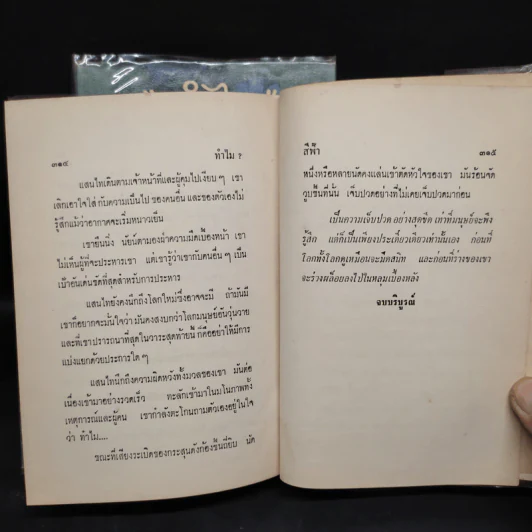 ๓๑๔ ทำไม ?
แสนไทเดินตามเจ้าหน้าที่และผู้คุมไปเงียบ ๆ เขา
เลิกเอาใจใส่กับความเป็นไปของคนอื่น และของตัวเองไม่
รู้สึกแม้ว่าอากาศจะเริ่มหนาวเย็น
เขายืนนิ่ง นัยน์ตามองฝ่าความมืดเบื้องหน้า เขา
ไม่เห็นผู้ที่จะประหารเขา แต่เขารู้ว่าเขากับคนอื่น ๆ เป็น
เป้าอันเด่นชัดที่สุดสำหรับการประหาร
แสนไทยังคงนึกถึงโลกใหม่ซึ่งอาจจะมี ถ้ามันมี
เขาก็อยากจะมั่นใจว่า มันคงสงบกว่าโลกมนุษย์อันวุ่นวาย
และที่เขาปรารถนาที่สุดในวาระสุดท้ายนี้ ก็คืออย่าให้มีการ
แบ่งแยกด้วยประการใด ๆ
แสนไทนึกถึงความผิดหวังทั้งมวลของเขา มันต่อ
เนื่องเข้ามาอย่างรวดเร็ว ทะลักเข้ามาในมโนภาพทั้ง
เหตุการณ์และผู้คน เขากำลังตะโกนถามตัวเองอยู่ในใจ
ว่า ทำไม....
ขณะที่เสียงระเบิดของกระสุนดังก้องขึ้นถี่ยิบ นัด
สีฟ้า ๓๑๕
หนึ่งหรือหลายนัดคงแล่นเข้าตัดหัวใจของเขา มันร้อนจัด
วูบขึ้นที่นั่น เจ็บปวดอย่างที่ไม่เคยเจ็บปวดมาก่อน
เป็นความเจ็บปวดอย่างสุดขีด เท่าที่มนุษย์จะพึง
รู้สึก แต่ก็เป็นเพียงประเดี๋ยวเดียวเท่านั้นเอง ก่อนที่
โลกทั้งโลกดูเหมือนจะมืดสนิท และก่อนที่ร่างของเขา
จะร่วงผล็อยลงไปในหลุมเบื้องหลัง
จบบริบูรณ์